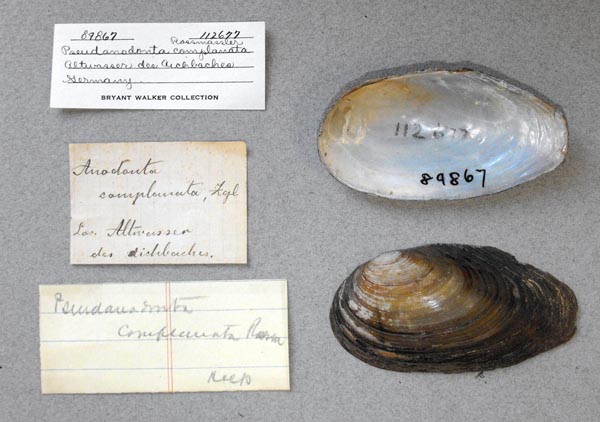 89867 112677
Rossmässler
Pseudanodonta complanata
Altwasser des Aichbaches
Germany
BRYANT WALKER COLLECTION
Anodonta
complanata, Zgl
Loc. Altwasser
des Aichbaches.
Pseudanodonta
complanata Rossm
112677
89867